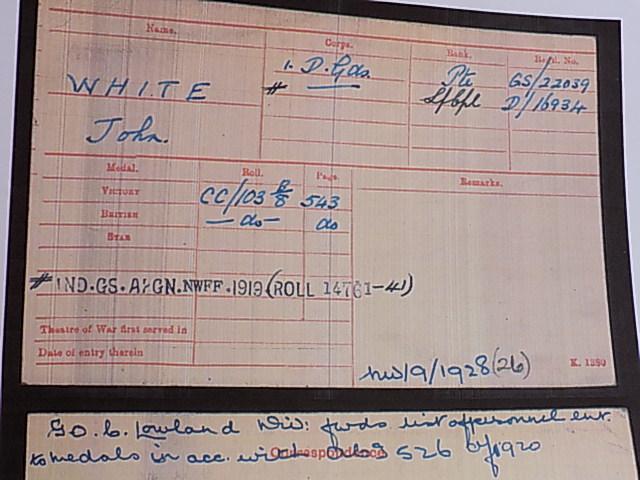 Name. Corps. Rank. Regtl. No.
1. D. Gds. Pte GS/22039
WHITE # D/16934
John.
Medal. Roll. Page. Remarks.
VICTORY CC/103 543
BRITISH — do — do
STAR
# IND.GS.AFGN.NWFF.1919 (ROLL 14761-41)
Theatre of War first served in
Date of entry therein
/9/1928 (26) K. 1380
G.O.C. Lowland Div: fwds list of personnel ent.
to medals in acc. with 526 of 1920
Correspondence